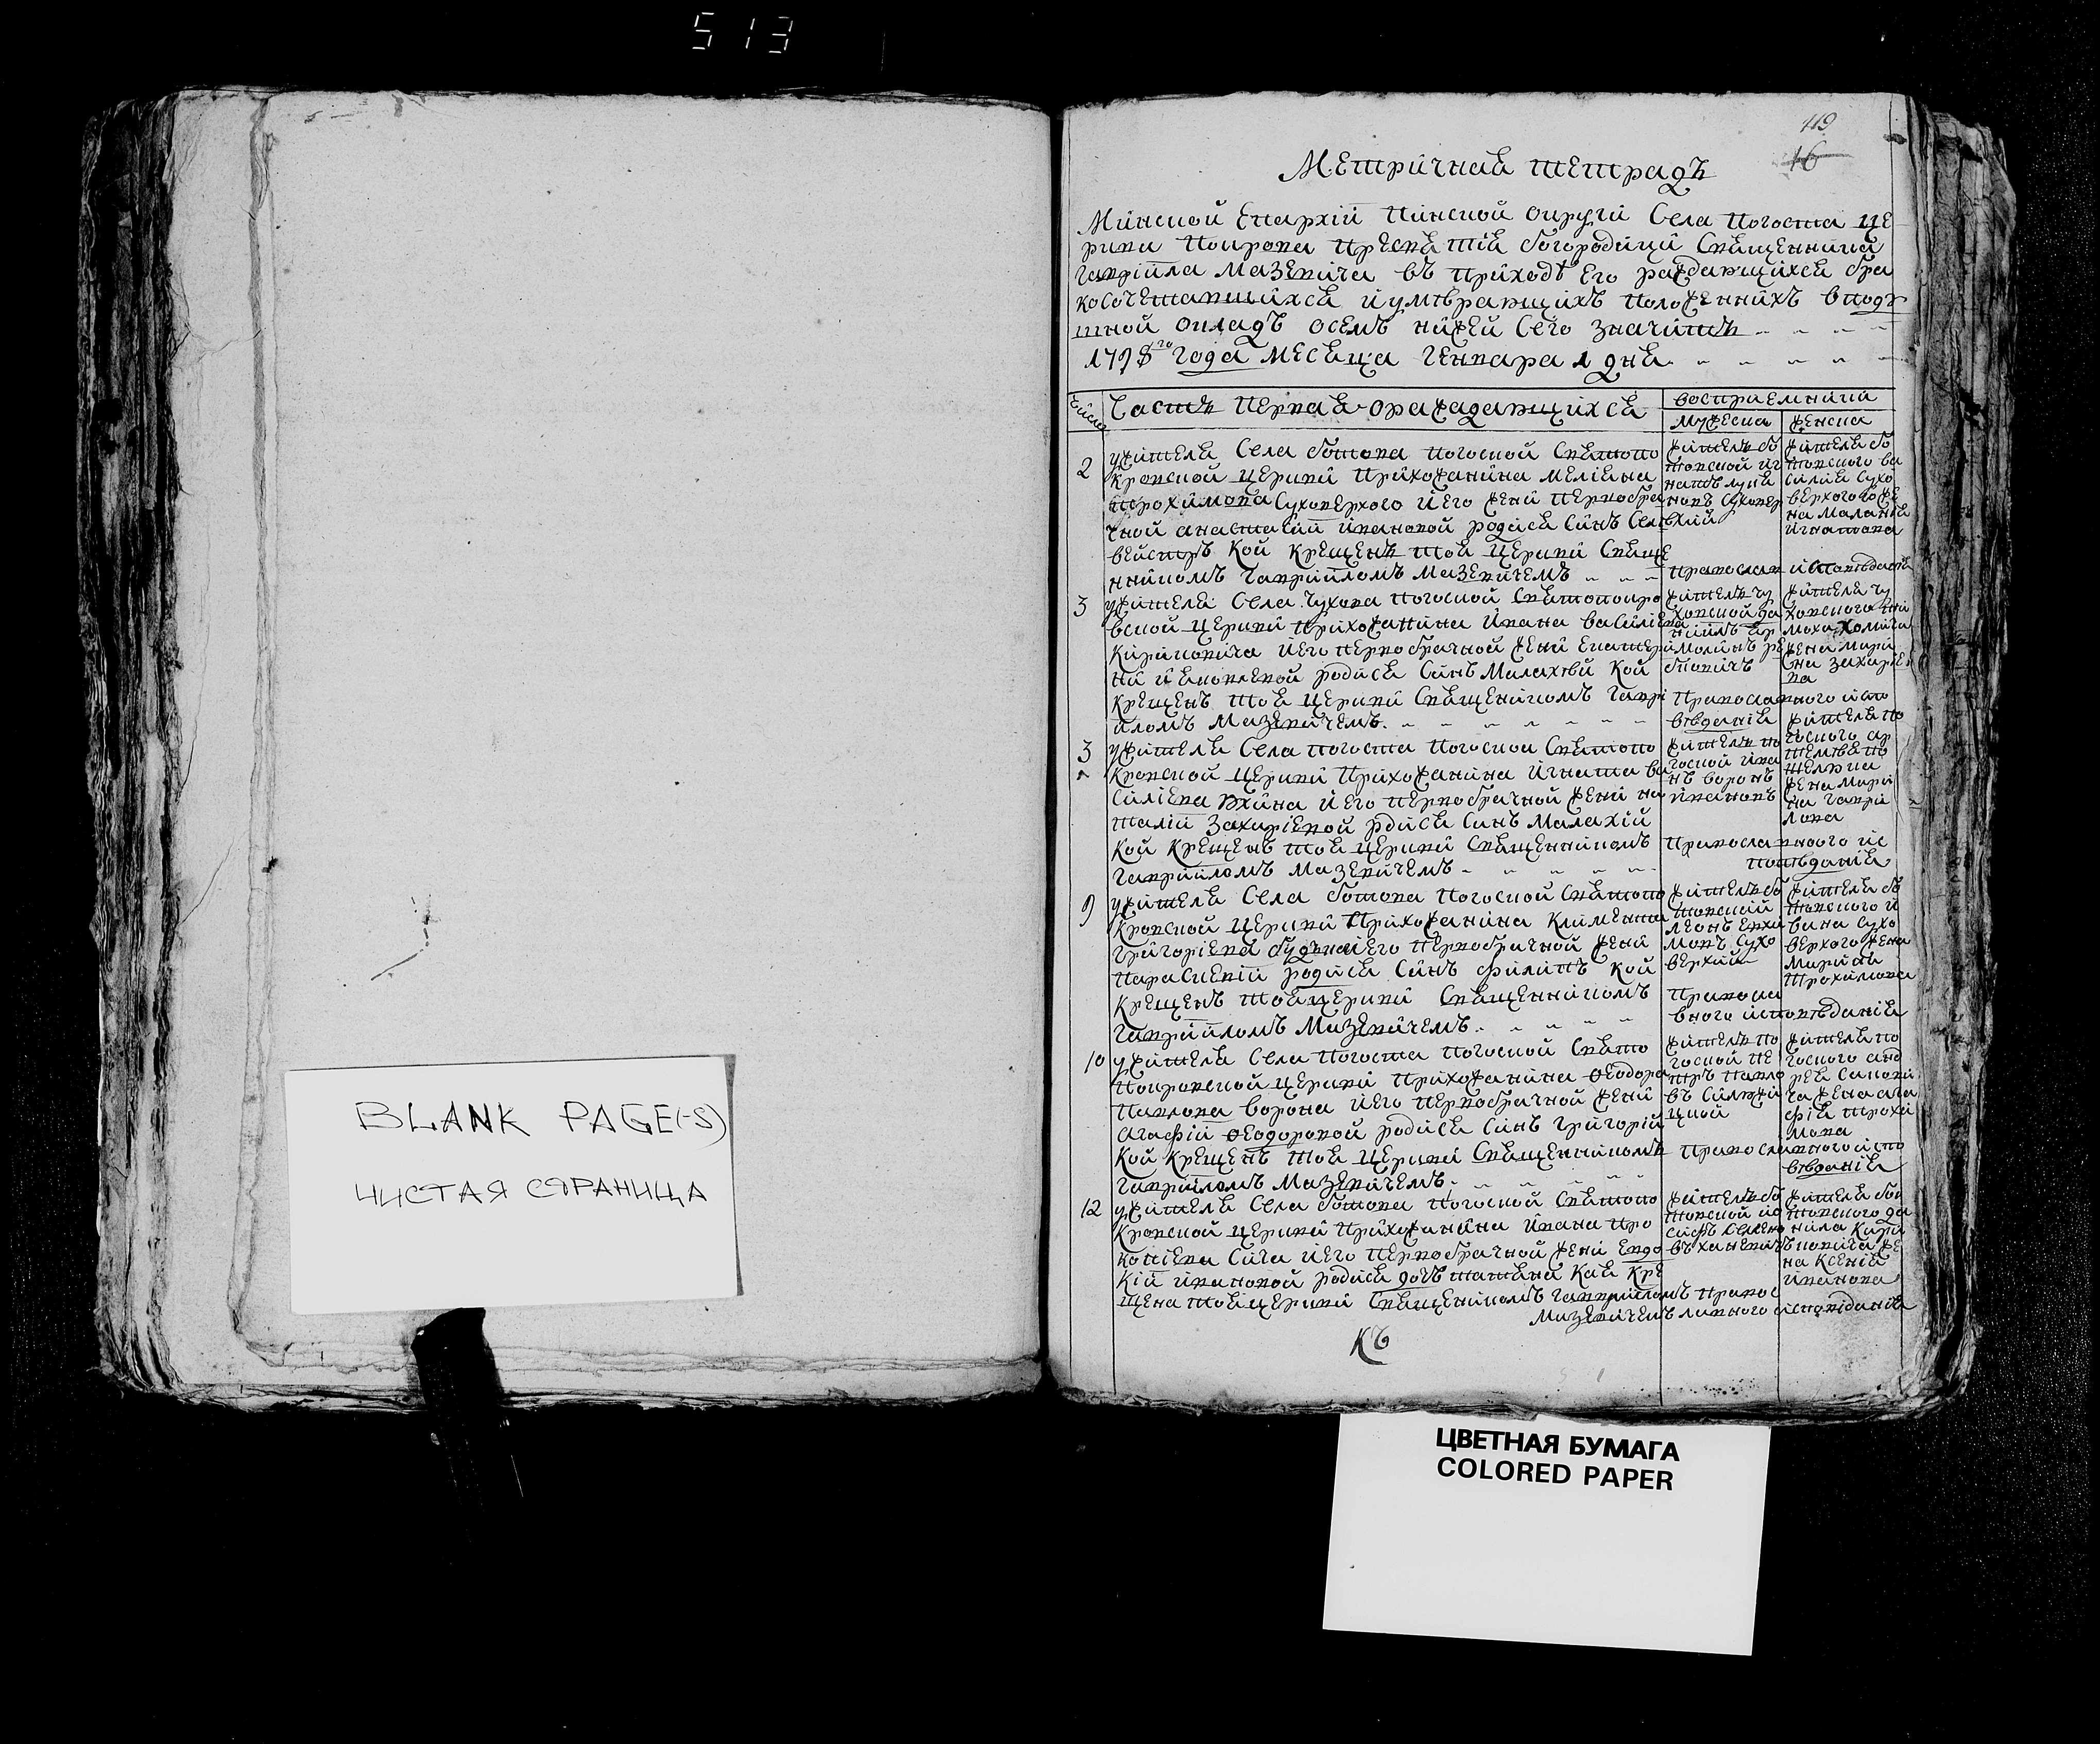 513
BLANK PAGE(-S)
ЧИСТАЯ СТРАНИЦА
119
16
Метричная тетрадь
Минской Епархіи Пинской округи Села Погоста це
ркви Покрова Пресвятія Богородици Священника
Гавріила Мазевича въ приходѣ Его раждающихся бра
косочетавшихся и умѣрающихъ положеннихъ в подȣ
шной окладъ осемъ нижей сего значитъ
1798го года месяца Генвара 1 дня
Число
Часть Первая о раждающихся
восприемники
мужеска
женска
2
у жителя Села Ботова Погоской Святопо
кровской церкви прихожанина Меліана
Трохимова Суховерхого и его жени первобра
чной Анастасіи Ивановой родися Синъ Селі
вейстръ кой крещенъ тоя церкви Свяще
нникомъ Гавріиломъ Мазевичемъ
житель бо
товской иг
натъ луки
новъ Суховер
хий
жителя бо
товского ва
силия Сухо
верхого же
на Маланія
Игнатова
Православ исповѣданія
3
у жителя Села Чухова Погоской Святопокро
вской церкви прихожанина Ивана Василіева
Кириковича и его первобрачной жени Екатери
ни Яковлевой родися Синъ Малахѣй кой
крещенъ тоя церкви Священикомъ Гаври
иломъ Мазевичемъ
житель чу
ховской да
жителя чу
ховского ти
моха Хомича
жена Мари
на Захаріе
ва
Православного испо
вѣданія
3
у жителя Села Погоста Погоской Святопо
кровской церкви прихожанина Игната Ва
силіева и его первобрачной жени На
таліи Захаріевой рдися Синъ Малахій
кой крещенъ тоя церкви Священникомъ
Гавріиломъ Мазевичемъ
житель по
гоской Ива
нъ воронъ
Ивановъ
жителя по
гоского ар
жена Мари
на Гаври
лова
Православного ис
повѣданія
9
у жителя Села Ботова Погоской Святопо
кровской церкви прихожанина Климента
Григоріева и его первобрачной жени
Параскевіи родися Синъ Филипъ кой
крещенъ тоя церкви Священникомъ
Гавріиломъ Мазевичемъ
житель бо
товский
леонъ Евхи
мовъ Сухо
верхий
жителя бо
товского и
вана Сухо
верхого жена
Марина
Трохимова
Правосла
вного исповѣданія
10
у жителя Села Погоста Погоской Свято
покровской церкви прихожанина Ѳеодора
Павлова Ворона и его первобрачной жени
Агафіи Ѳеодоровой родися Синъ Григорій
кой крещенъ тоя церкви Священникомъ
Гавріиломъ Мазевичемъ
житель по
гоской пе
тръ павло
въ
жителя по
гоского анд
рея
ча жена ага
фія трохи
мова
Православного испо
вѣданія
12
у жителя Села Ботова Погоской Святопо
кровской церкви прихожанина Ивана Про
копіева Сича и его первобрачной жени Евдо
кіи Ивановой родися дочь Татияна кая кре
щена тоя церкви Священикомъ Гавріиломъ
Мазевичемъ
житель бо
товской ио
сифъ Семено
въ
жителя бо
товского да
нила Кири
ковича же
на Ксенія
Иванова
Правос
лавного исповіданія
Къ
ЦВЕТНАЯ БУМАГА
COLORED PAPER